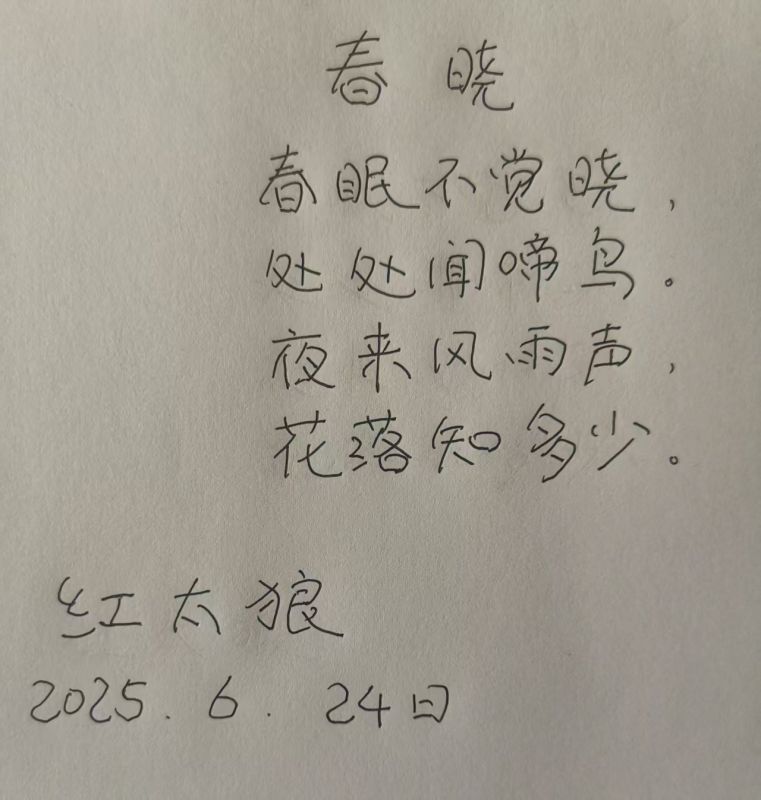 春 晓
春眠不觉晓，
处处闻啼鸟。
夜来风雨声，
花落知多少。
红太狼
2025. 6. 24日